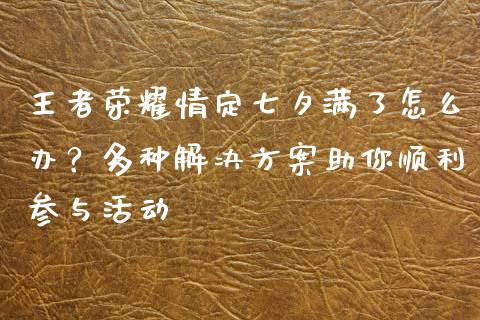 王者荣耀情定七夕满了怎么
办？多种解决方案助你顺利
参与活动